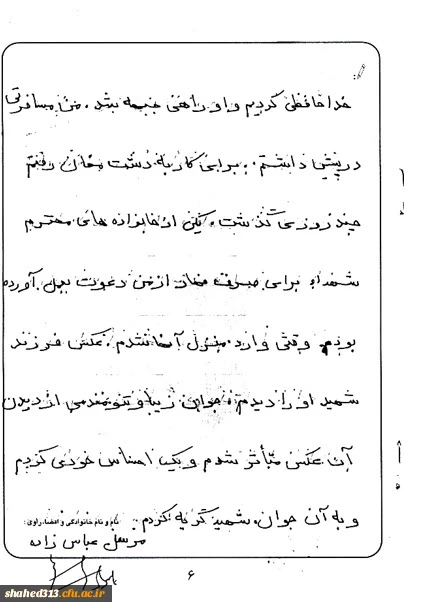 خداحافظی کردیم و او راهی جبهه شد. من مسافرتی
در پیش داشتم. برای کار به دشت مغان رفتم
چند روزی گذشت. یکی از خانواده های محترم
شهداء برای صرف نهار از من دعوت بعمل آورده
بودم وقتی وارد منزل آنها شدم. عکس فرزند
شهید او را دیدم. جوان زیبا و تنومندمی از دیدن
آن عکس متأثر شدم و یک احساس خودی کردیم
و به آن جوان شهید گریه کردم.
نام و نام خانوادگی و امضاء راوی:
مرسل عباس زاده
۶
shahed313.cfu.ac.ir